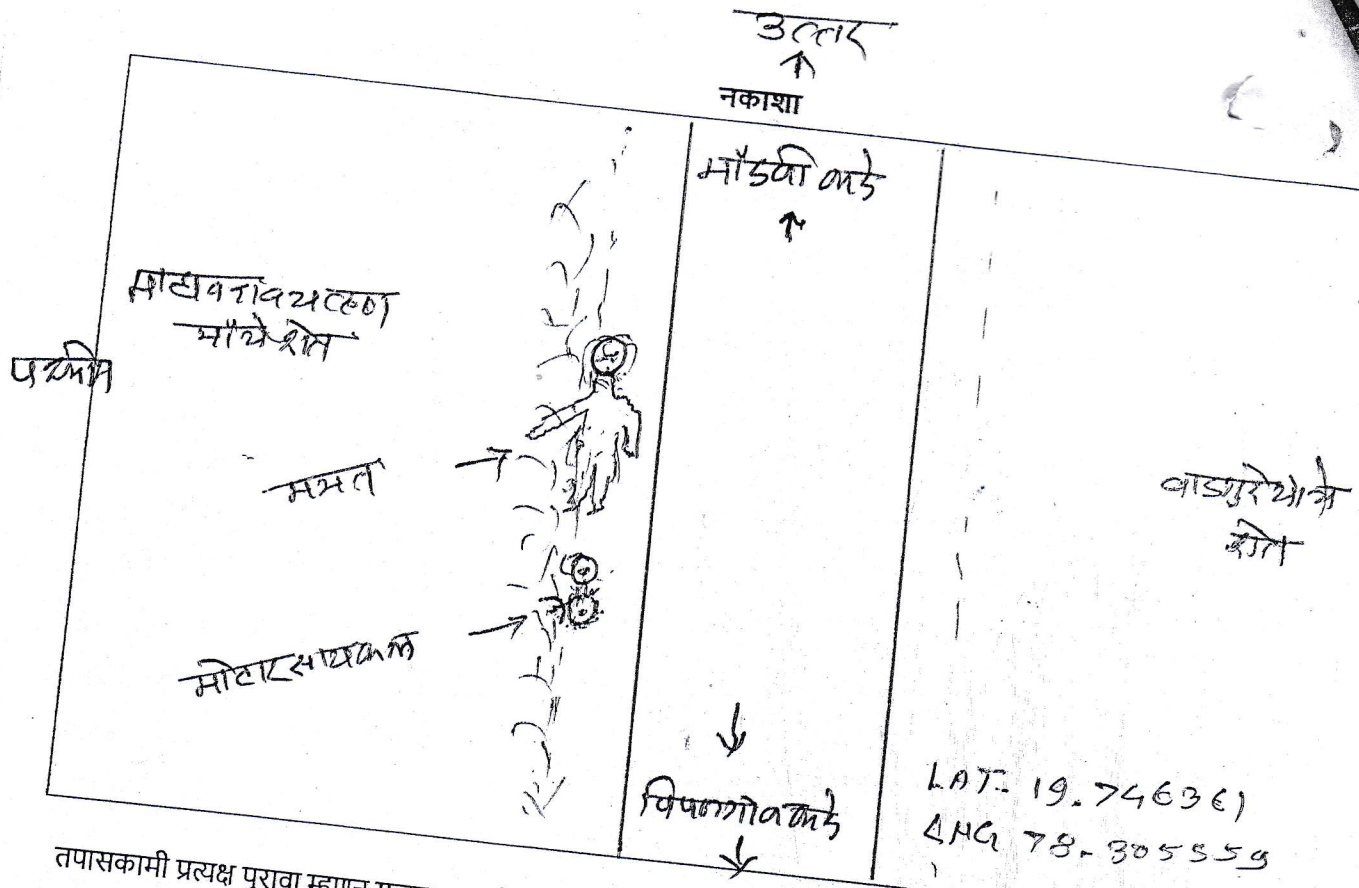 उत्तर
नकाशा
मांडवी कडे
माधवराव
यांचे शेत
पश्चिम
मयत
यांचे
शेत
मोटारसायकल
पिंपळगाव कडे
LAT. 19.746361
LNG 78.305559
तपासकामी प्रत्यक्ष पुरावा म्हणून